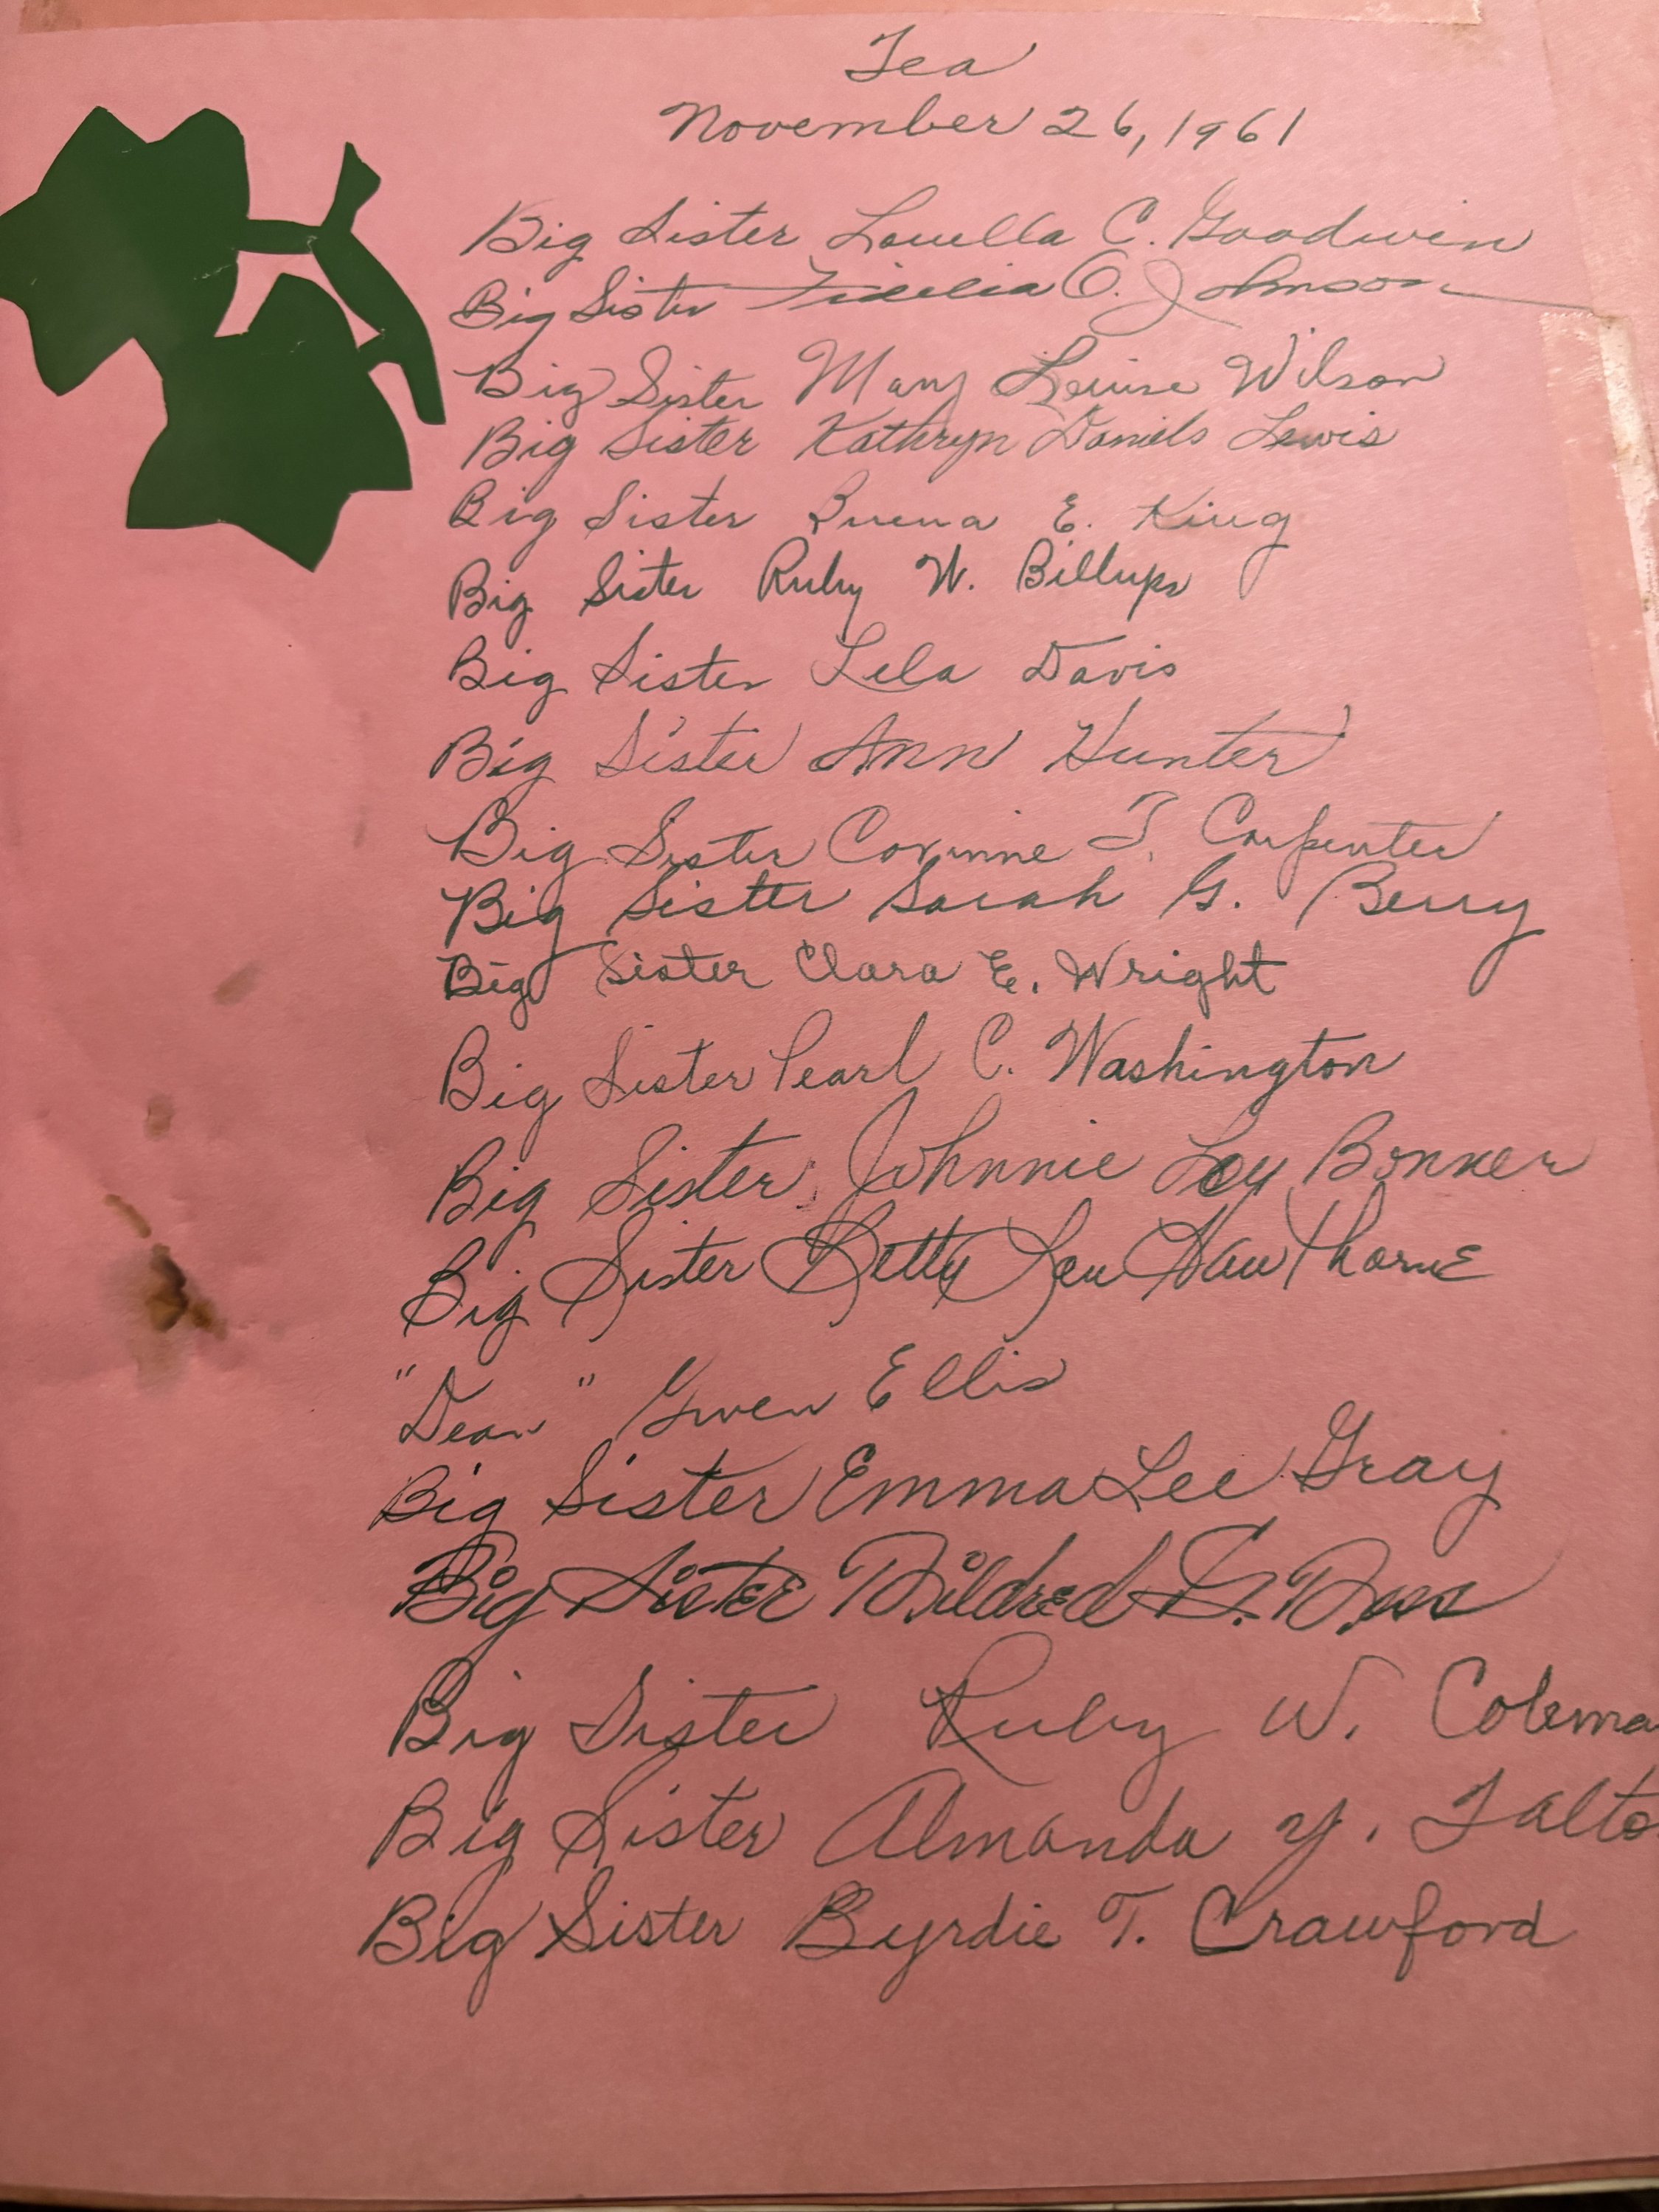 Tea
November 26, 1961
Big Sister Louella C. Goodwin
Big Sister Fidelia O. Johnson
Big Sister Mary Louise Wilson
Big Sister Kathryn Daniels Lewis
Big Sister Buena E. King
Big Sister Ruby W. Billups
Big Sister Lela Davis
Big Sister Ann Hunter
Big Sister Corinne T. Carpenter
Big Sister Sarah G. Berry
Big Sister Clara E. Wright
Big Sister Pearl C. Washington
Big Sister Johnnie Loy Bonner
Big Sister Betty Lou Hawthorne
"Dean" Gwen Ellis
Big Sister Emma Lee Gray
Big Sister Mildred G.
Big Sister Ruby W. Colema
Big Sister Almanda Y. Talto
Big Sister Byrdie T. Crawford